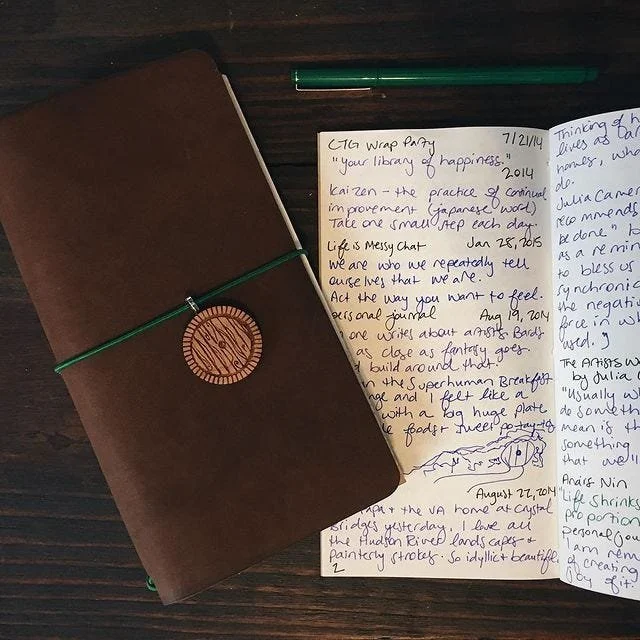 CTG Wrap Party 7/21/14
"your library of happiness."
2014
Kaizen - the practice of continual
improvement (japanese word)
Take one small step each day.
Life is Messy Chat Jan 28, 2015
We are who we repeatedly tell
ourselves that we are.
Act the way you want to feel.
ersonal journal Aug 19, 2014
one writes about artists. Bards
as close as fantasy goes.
build around that.
in the Superhuman Breakfast
and I felt like a
with a big huge plate
foods + sweet potato
August 22, 2014
+ the VA home at Crystal
Bridges yesterday. I love all
the Hudson River landscapes +
painterly strokes. So idyllic + beautiful.
2
Thinking of h
lives as
homes, who
do.
Julia Came
recommends
be done" b
as a remin
to bless us
synchronic
the negativ
force in wh
used.
The Artists W
by Julia C
"Usually wh
do someth
mean is th
something
that we"
Anaïs Nin
"Life shrinks
proportion
Personal Jou
I am rem
of creating
joy of it.